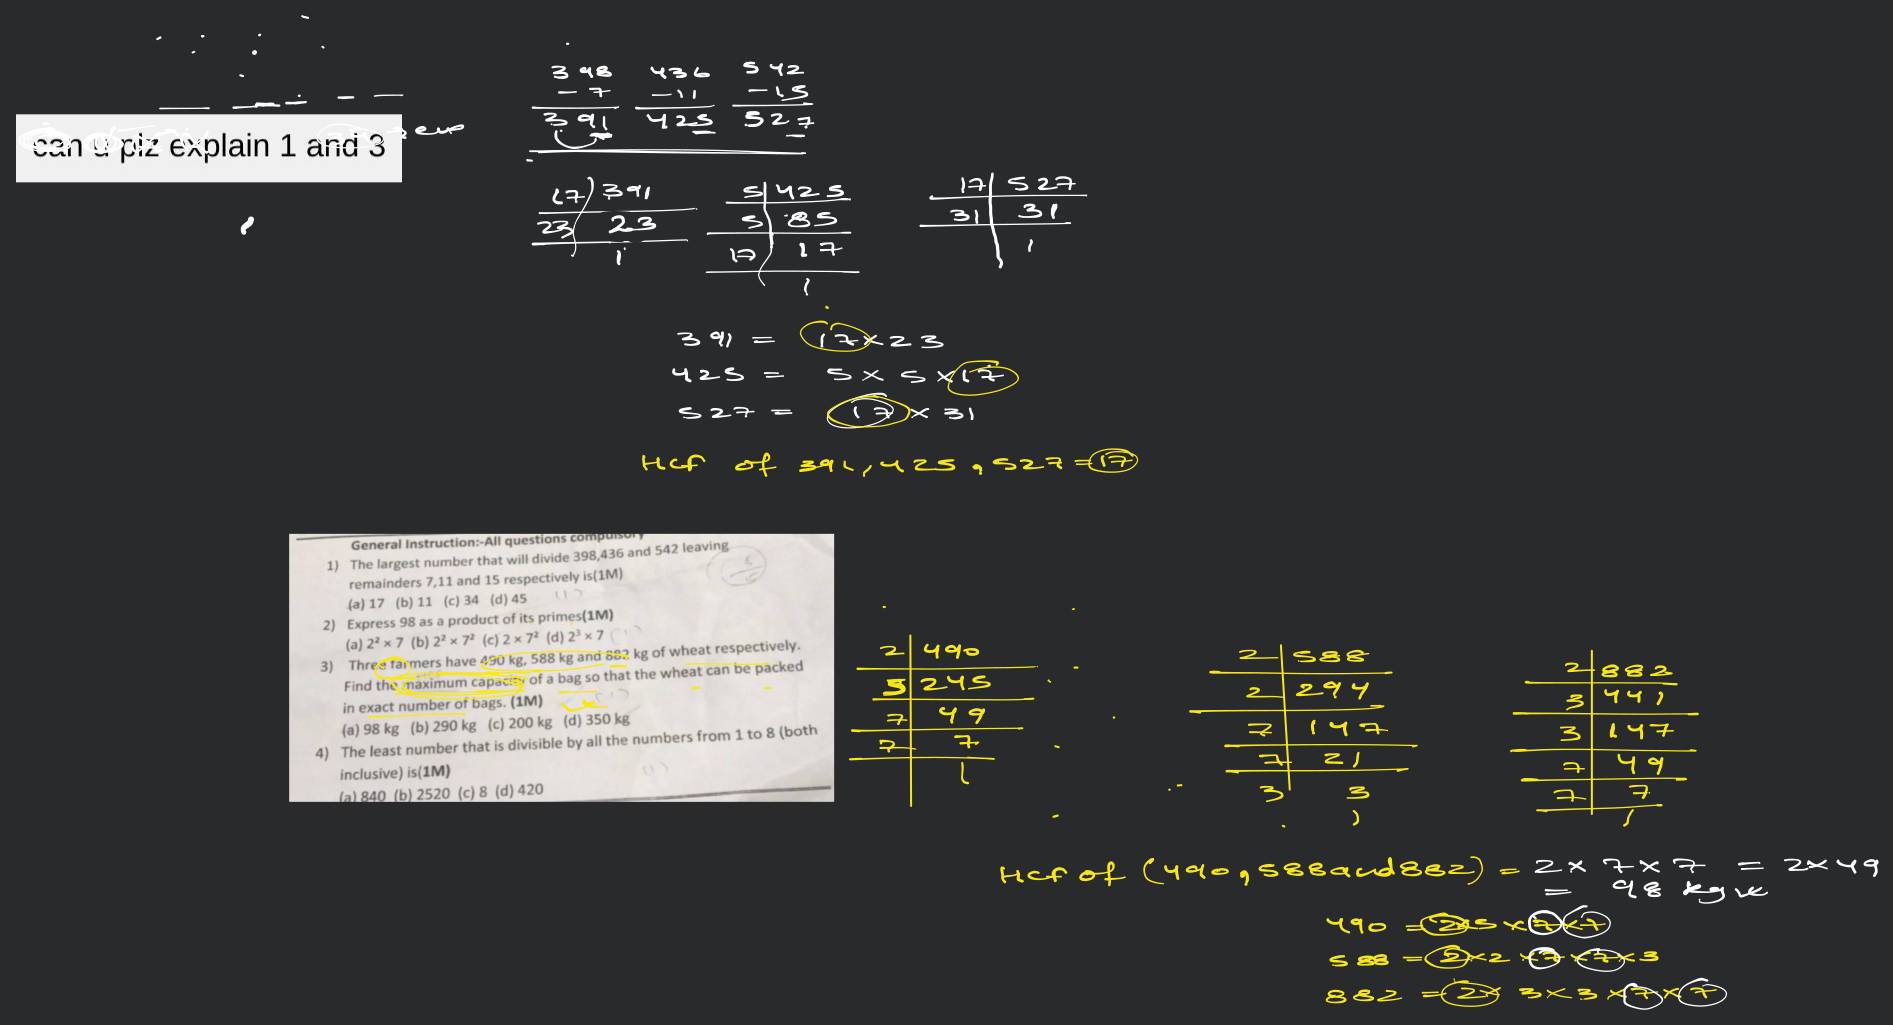 can u plz explain 1 and 3
398 436 542
-7 -11 -15
391 425 527
17 391
23 23
1
5 425
5 85
17 17
1
17 527
31 31
1
391 = 17×23
425 = 5×5×17
527 = 17×31
HCF of 391,425,527=17
General Instruction:-All questions compulsory
1) The largest number that will divide 398,436 and 542 leaving
remainders 7,11 and 15 respectively is(1M)
(a) 17 (b) 11 (c) 34 (d) 45
2) Express 98 as a product of its primes(1M)
(a) 2² × 7 (b) 2² × 7² (c) 2 × 7² (d) 2³ × 7
3) Three farmers have 490 kg, 588 kg and 882 kg of wheat respectively.
Find the maximum capacity of a bag so that the wheat can be packed
in exact number of bags. (1M)
(a) 98 kg (b) 290 kg (c) 200 kg (d) 350 kg
4) The least number that is divisible by all the numbers from 1 to 8 (both
inclusive) is(1M)
(a) 840 (b) 2520 (c) 8 (d) 420
2 490
5 245
7 49
7 7
1
2 588
2 294
7 147
7 21
3 3
1
2 882
3 441
3 147
7 49
7 7
1
HCF of (490,588and882) = 2×7×7 = 2×49
= 98 kg
490 = 2×5×7×7
588 = 2×2×7×7×3
882 = 2×3×3×7×7